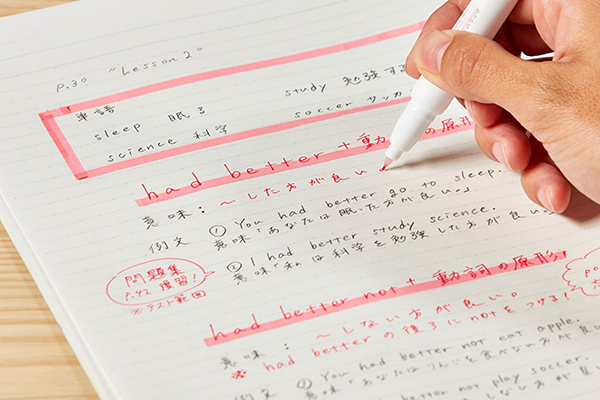 P.30 "Lesson 2"
単語 study 勉強する
sleep 眠る soccer サッカ
science 科学
had better + 動詞の原形
意味： 〜した方が良い。
例文 ① You had better go to sleep.
意味「あなたは眠った方が良い。」
② I had better study science.
意味「私は科学を勉強した方が良い
問題集
P.42 復習！
※テスト範囲
had better not + 動詞の原形
po
意味： 〜しない方が良い。
※ had better の後ろに not をつける！
例文 ① You had better not eat apple.
意味「あなたはりんごを食べない方が良い
had better not play soccer.
しない方が良い